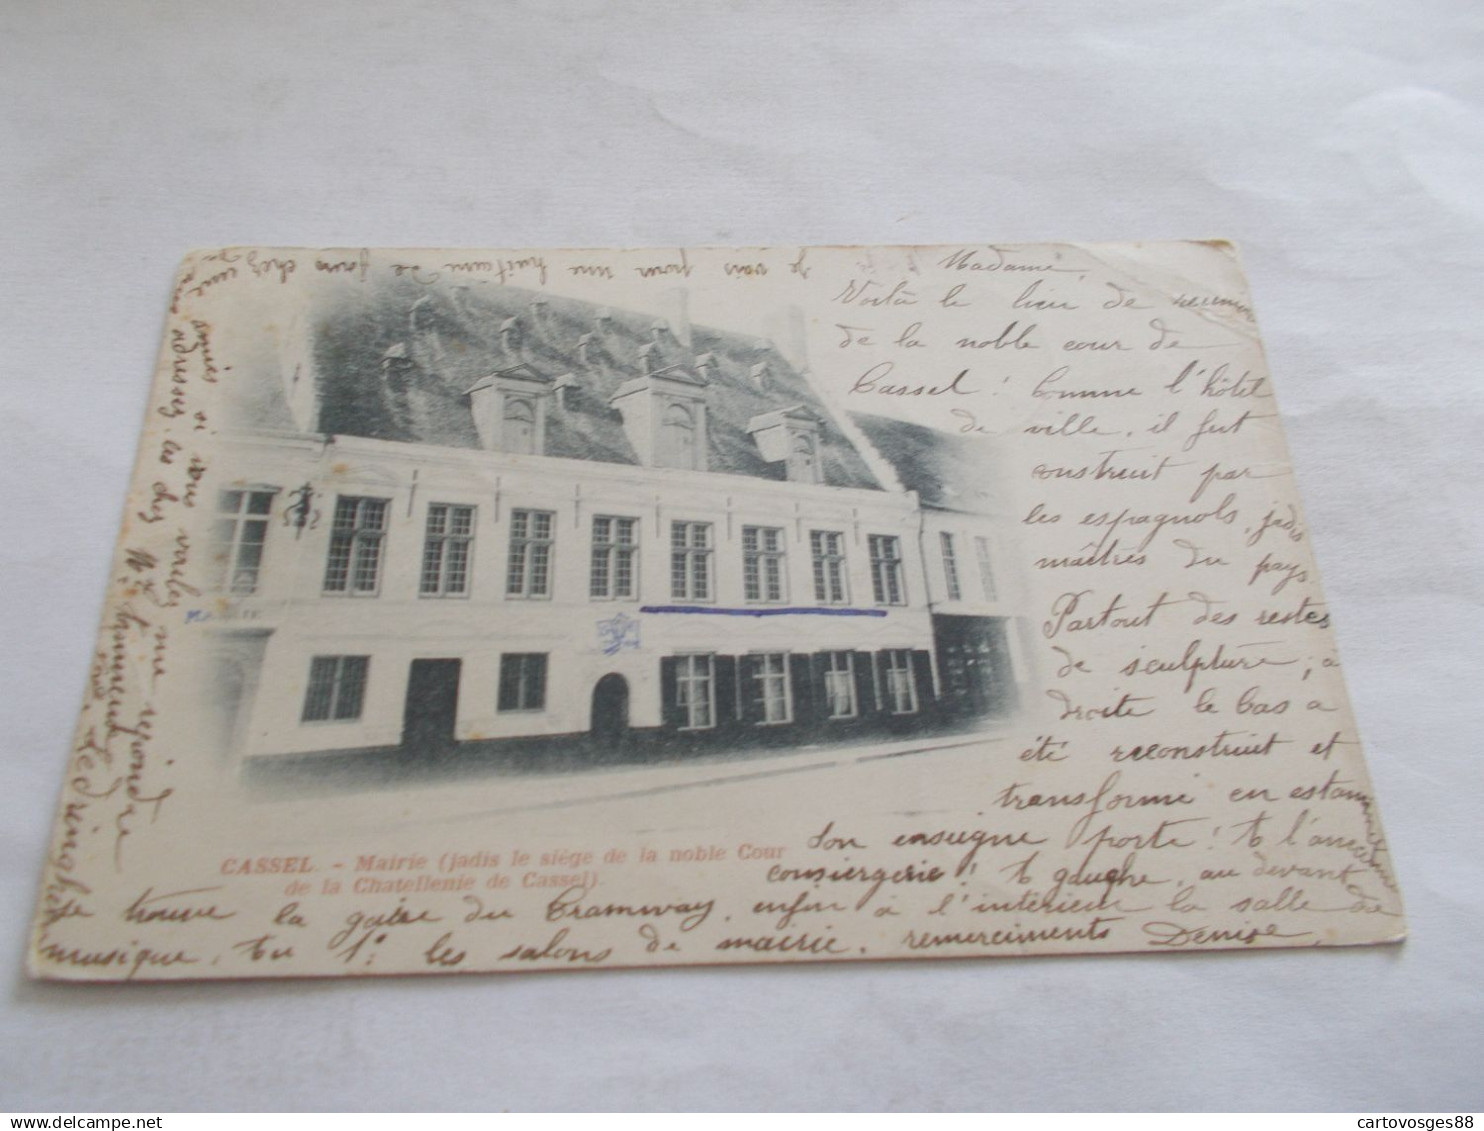 Madame,
Voilà le lieu de reunion
de la noble cour de
Cassel ! Comme l'hôtel
de ville, il fut
construit par
les espagnols, jadis
maîtres du pays
Partout des restes
de sculpture ; a
droite le bas a
été reconstruit et
transformé en estaminet
Son enseigne porte : to l'ancienne
consiergerie ! to gauche, au devant de
se trouve la gare du Tramway, enfin à l'intérieur la salle de
musique, au 1: les salons de mairie. remerciments Denise.
CASSEL. - Mairie (jadis le siège de la noble Cour
de la Chatellenie de Cassel).
je vais pour une huitaine de jours chez une
de mes amies si vous voulez me repondre
adressez les chez Mr
Ledringhem
cartovosges88